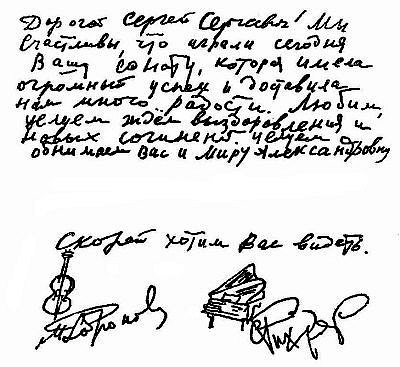 Дорогой Сергей Сергеевич! Мы
счастливы, что играли сегодня
Вашу сонату, которая имела
огромный успех и доставила
нам много радости. Любим,
целуем ждём выздоровления и
новых сочинений. целуем
обнимаем Вас и Миру Александровну
Скорей хотим Вас видеть.
МРостропович
СРихтер